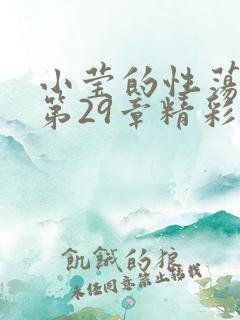 小莹的性荡
第29章精彩
飢餓的狼
未经同意禁止转载